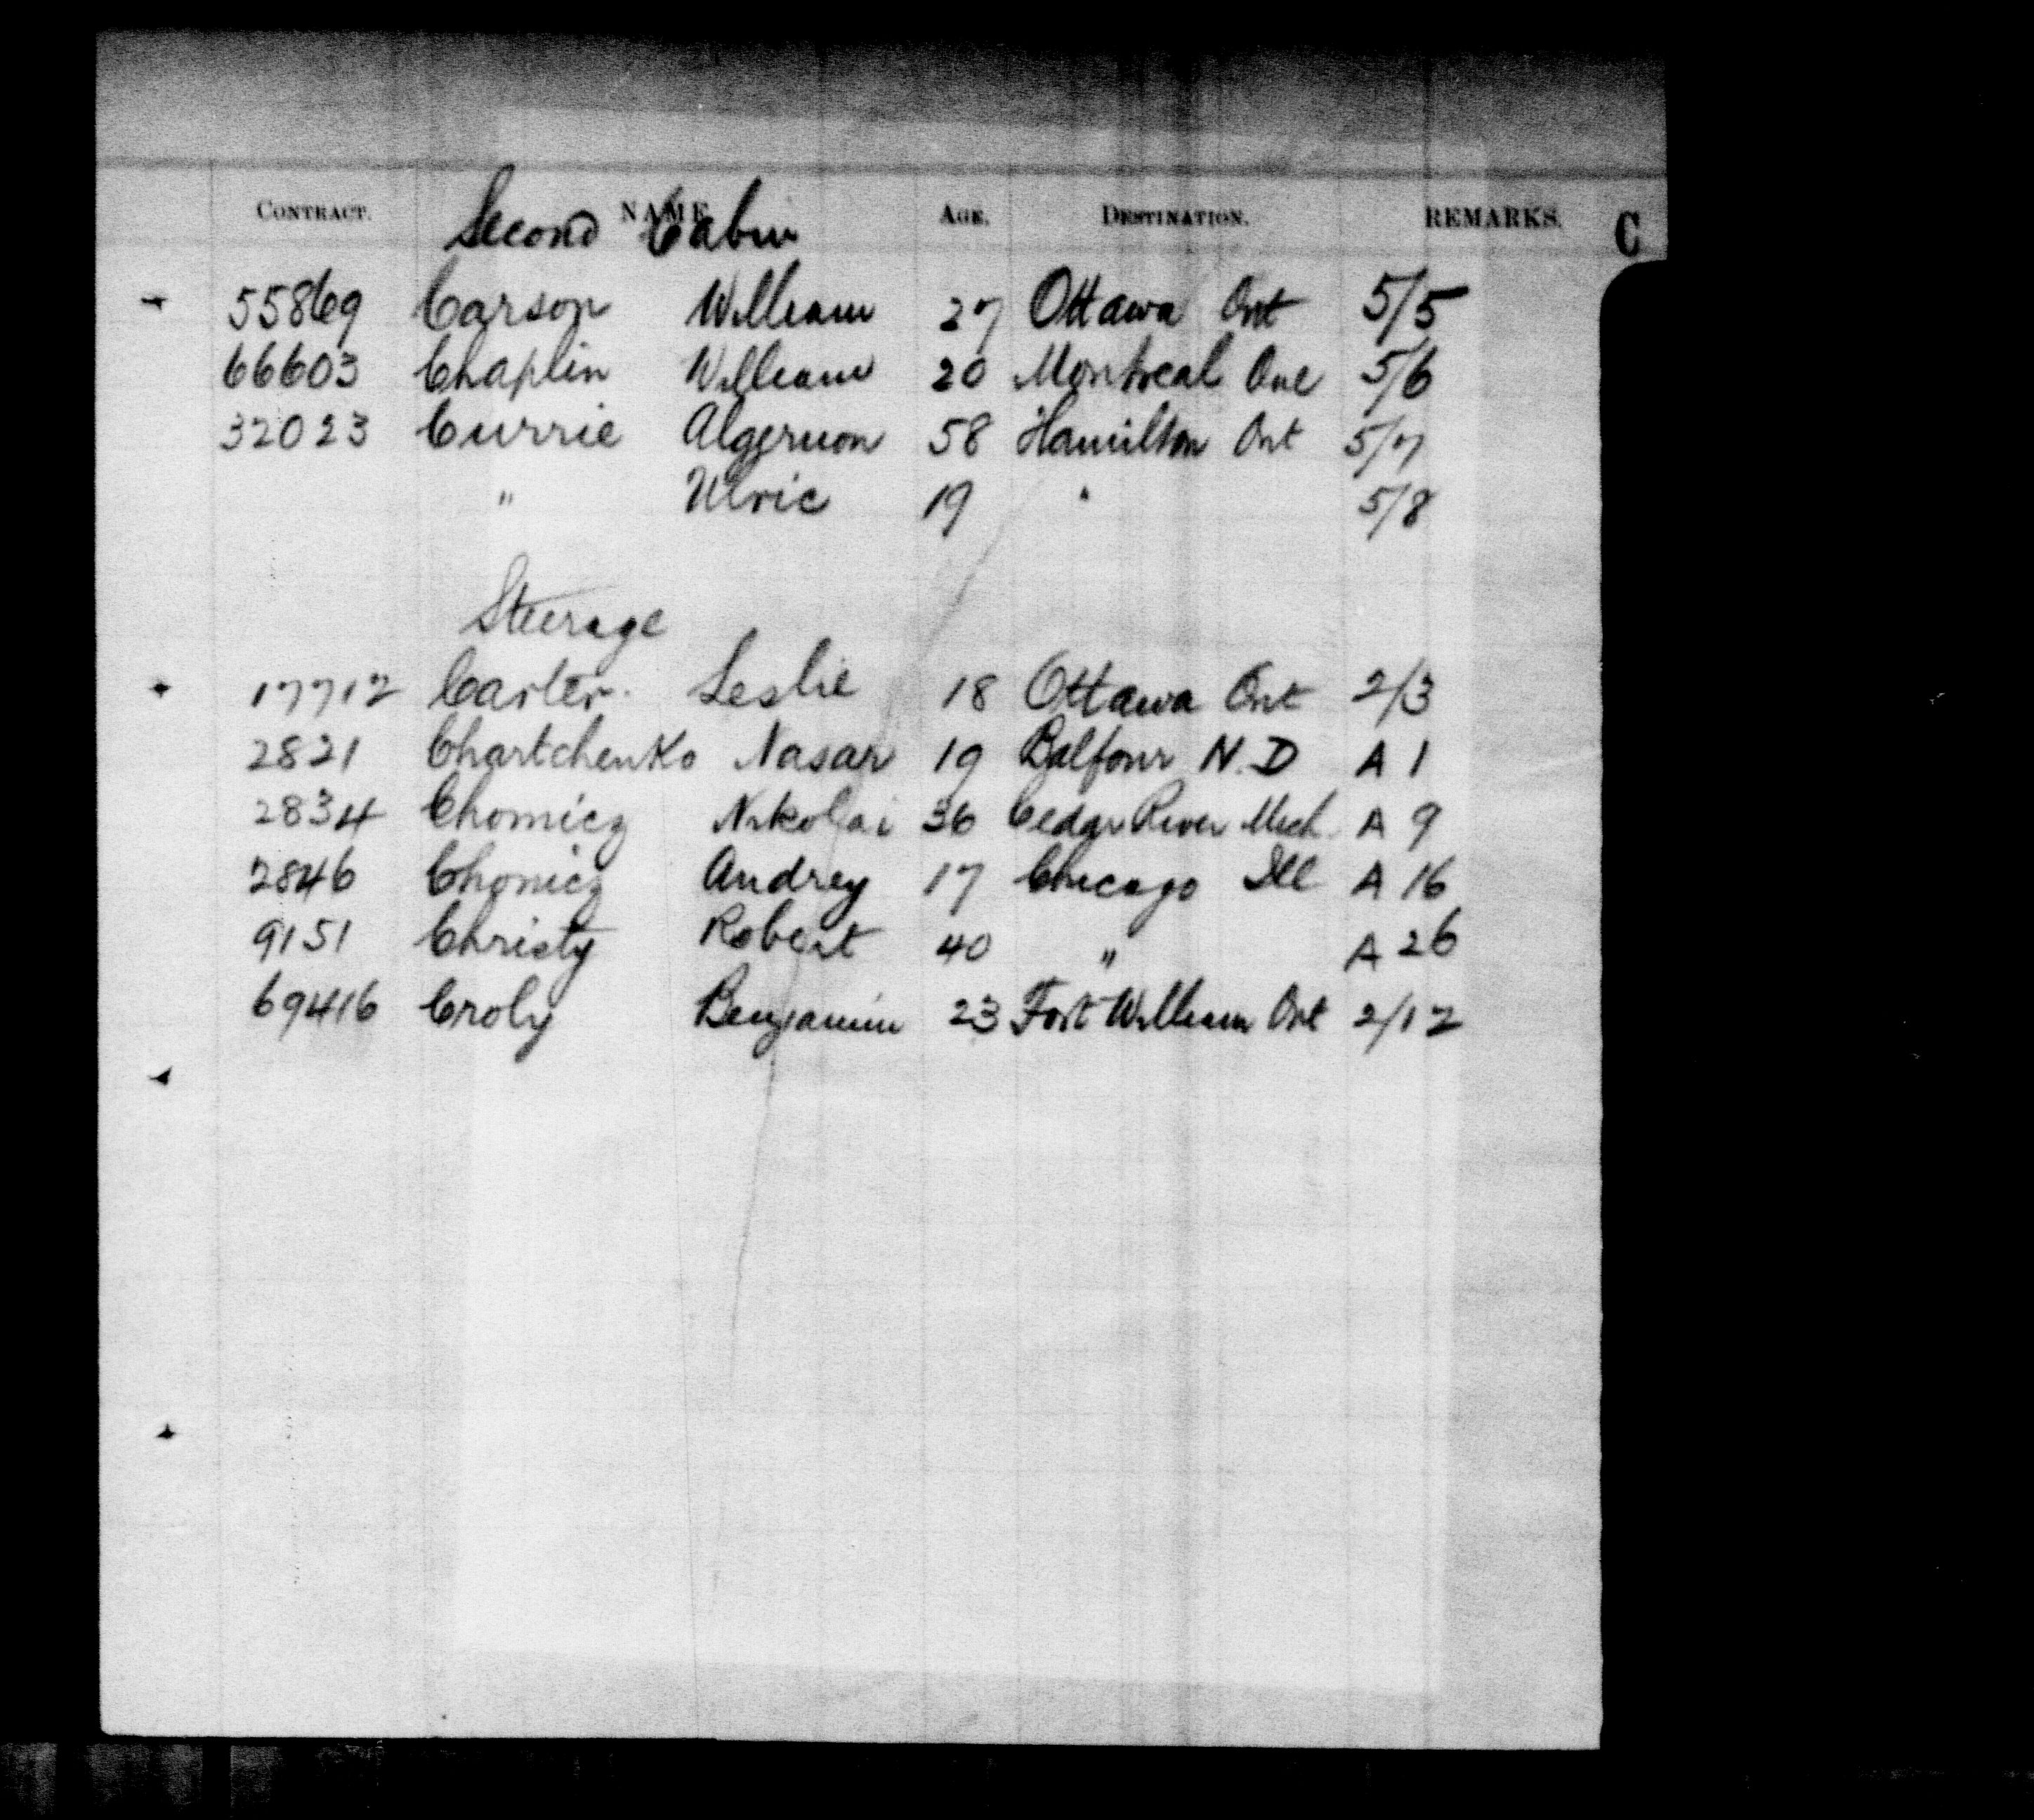 CONTRACT. NAME. AGE. DESTINATION. REMARKS. C
Second Cabin
55869 Carson William 27 Ottawa Ont 5/5
66603 Chaplin William 20 Montreal Que 5/6
32023 Currie Algernon 58 Hamilton Ont 5/7
" Ulric 19 " 5/8
Steerage
17712 Carter. Leslie 18 Ottawa Ont 2/3
2821 Chartchenko Nasar 19 Balfour N.D A 1
2834 Chomicz Nikolai 36 Cedar River Mich A 9
2846 Chomicz Andrey 17 Chicago Ill A 16
9151 Christy Robert 40 " A 26
69416 Croly Benjamin 23 Fort William Ont 2/12